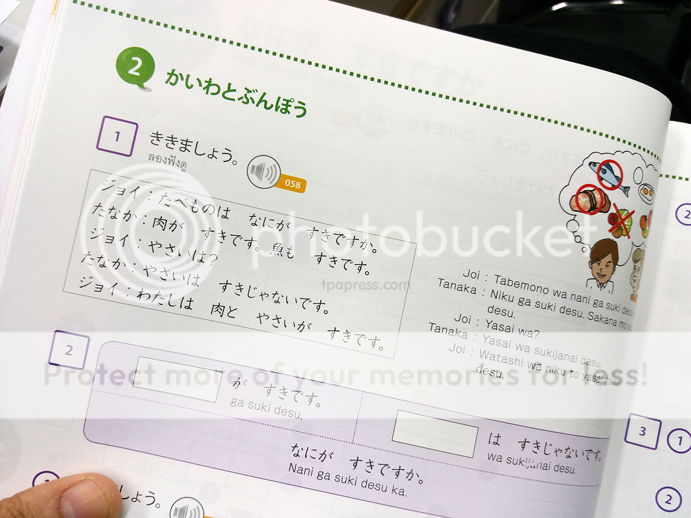 2
かいわとぶんぽう
1
ききましょう。
ลองฟังดู
058
ジョイ：たべものは なにが すきですか。
たなか：肉が すきです。魚も すきです。
ジョイ：やさいは？
たなか：やさいは すきじゃないです。
ジョイ：わたしは 肉と やさいが すきです。
Joi : Tabemono wa nani ga suki desu
Tanaka : Niku ga suki desu. Sakana mo
desu.
Joi : Yasai wa?
Tanaka : Yasai wa sukijanai desu.
Joi : Watashi wa niku to yasai
desu.
photobucket
tpapress.com
Protect more of your memories for less!
2
が すきです。
ga suki desu.
は すきじゃないです。
wa sukijanai desu.
なにが すきですか。
Nani ga suki desu ka.
しょう。
2
3
1
2